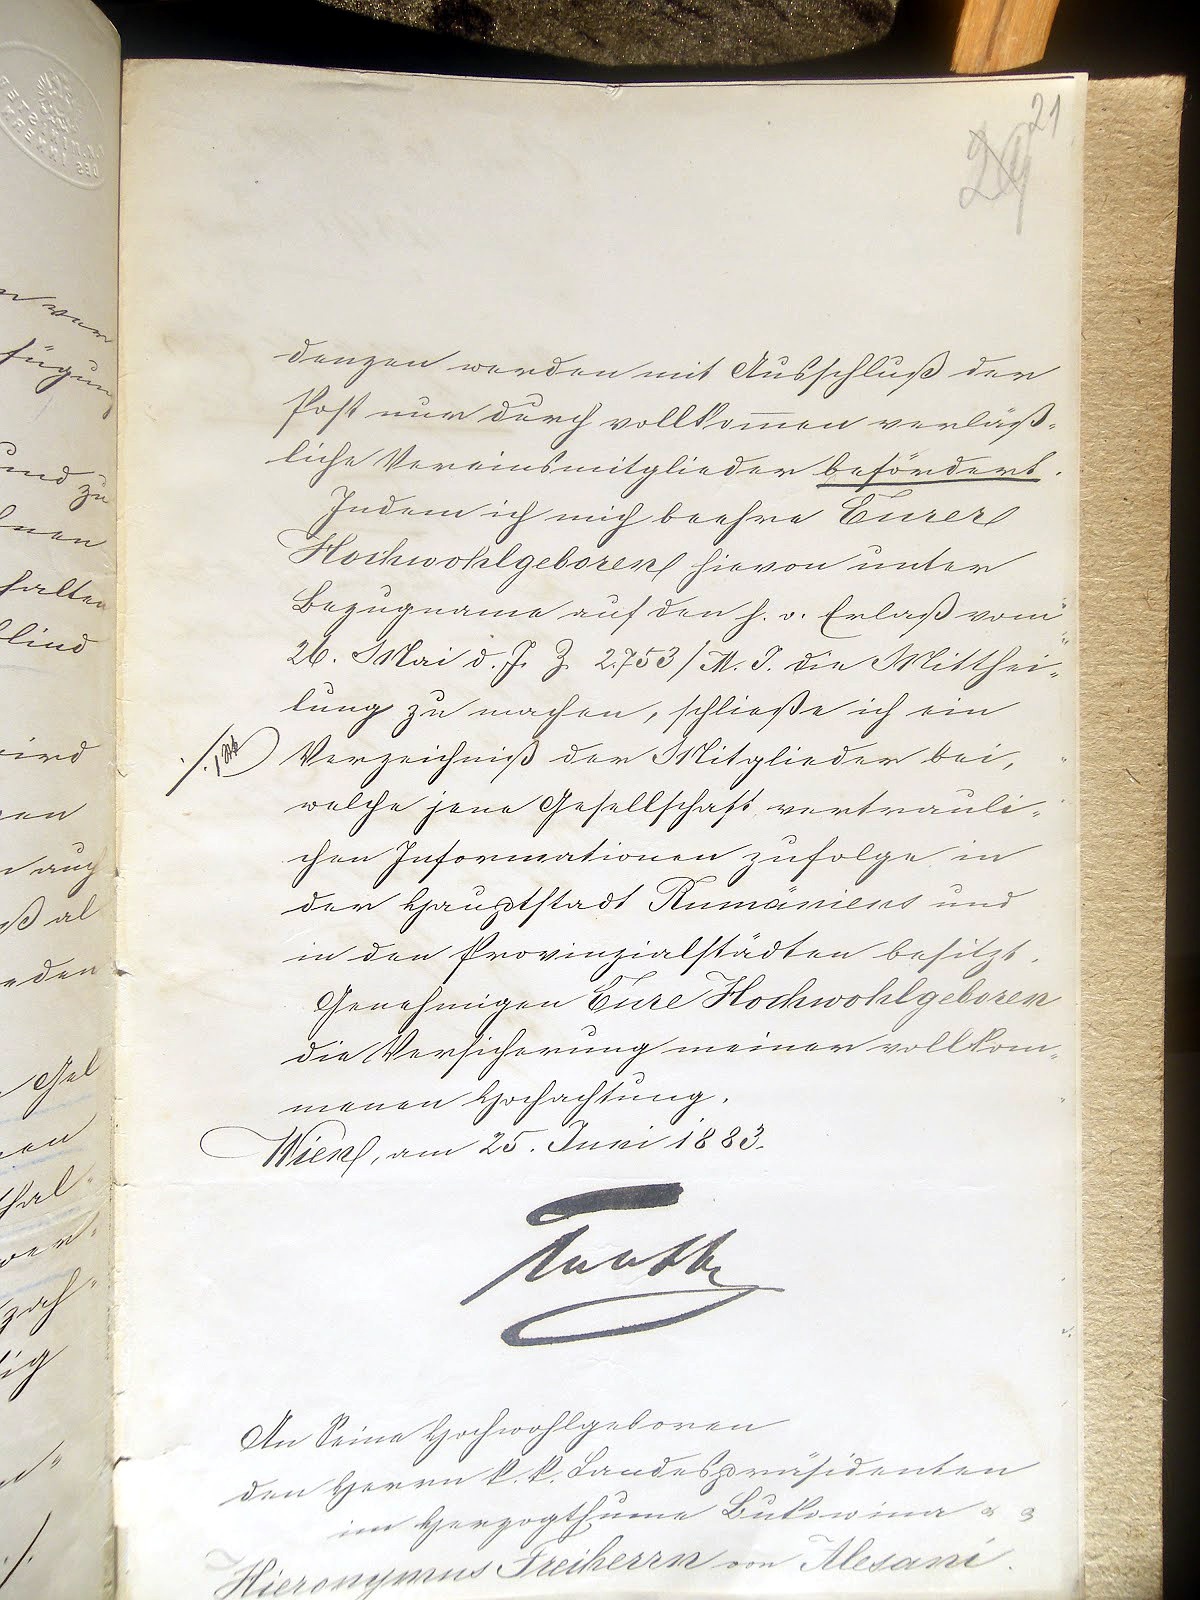 21
29
denzen werden mit Ausschluß der
Post nur durch vollkom̅en verläß-
liche Vereinsmitglieder befördert.
Indem ich mich beehre Eurer
Hochwohlgeboren hievon unter
Bezugname auf den h. o. Erlaß vom
26. Mai d. J. Z. 2753/M. I. die Mitthei-
lung zu machen, schließe ich ein
./. Verzeichniß der Mitglieder bei,
welche jene Gesellschaft vertrauli-
chen Informationen zufolge in
der Hauptstadt Rumäniens und
in den Provinzialstädten besitzt.
Genehmigen Eure Hochwohlgeboren
die Versicherung meiner vollkom-
menen Hochachtung.
Wien, am 25. Juni 1883.
Taaffe
An Seine Hochwohlgeboren
den Herrn k. k. Landespräsidenten
im Herzogthume Bukowina
Hieronymus Freiherrn von Alesani.